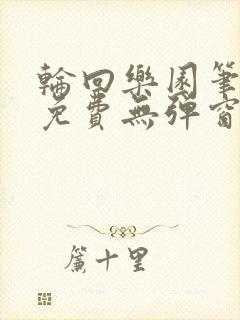 輪回樂園筆
免費無彈窗
簾十里